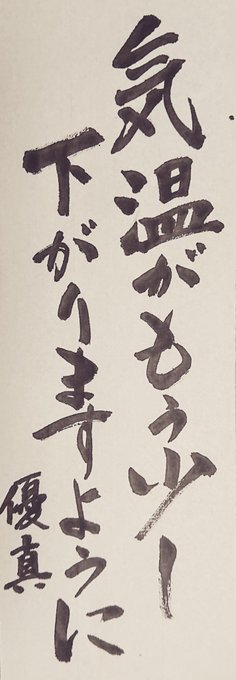 気温がもう少し
下がりますように
優真